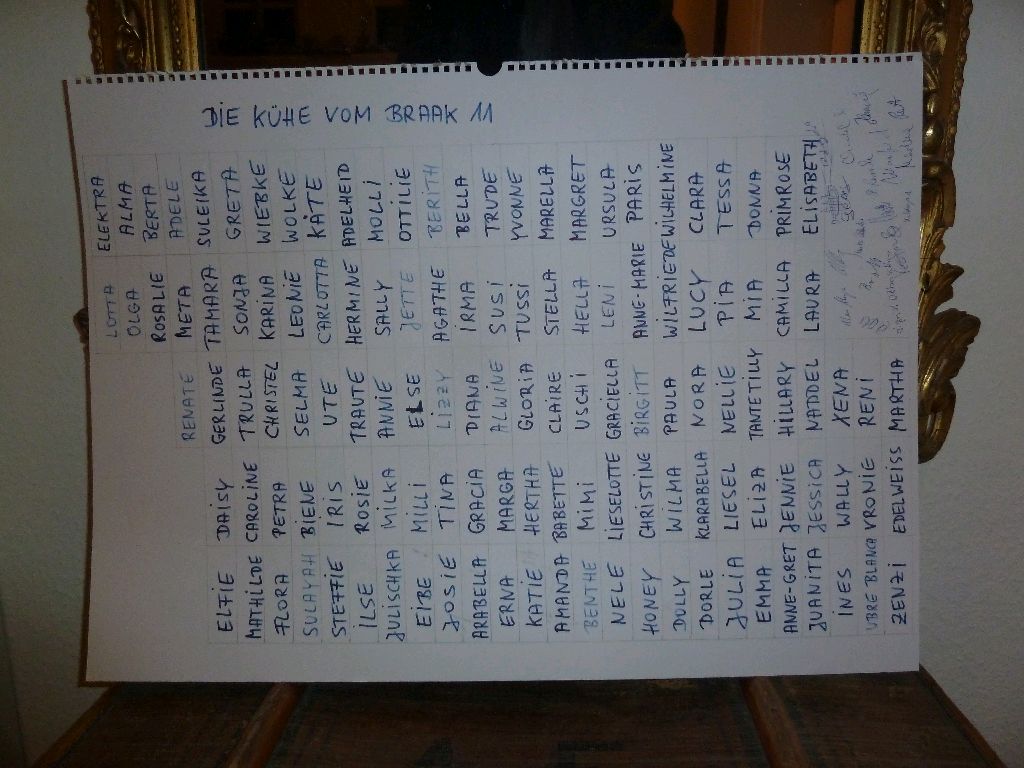 DIE KÜHE VOM BRAAK 11
LOTTA ELEKTRA
OLGA ALMA
ROSALIE BERTA
RENATE META ADELE
ELFIE DAISY GERLINDE TAMARA SULEIKA
MATHILDE CAROLINE TRULLA SONJA GRETA
FLORA PETRA CHRISTEL KARINA WIEBKE
SULAYAH BIENE SELMA LEONIE WOLKE
STEFFIE IRIS UTE CARLOTTA KÄTE
ILSE ROSIE TRAUTE HERMINE ADELHEID
JULISCHKA MILKA ANNIE SALLY MOLLI
EIBE MILLI ELSE JETTE OTTILIE
JOSIE TINA LIZZY AGATHE BERITH
ARABELLA GRACIA DIANA IRMA BELLA
ERNA MARGA ALWINE SUSI TRUDE
KATIE HERTHA GLORIA TUSSI YVONNE
AMANDA BABETTE CLAIRE STELLA MARELLA
BENTHE MIMI USCHI HELLA MARGRET
NELE LIESELOTTE GRACIELLA LENI URSULA
HONEY CHRISTINE BIRGITT ANNE-MARIE PARIS
DOLLY WILMA PAULA WILFRIEDE WILHELMINE
DORLE KLARABELLA NORA LUCY CLARA
JULIA LIESEL NELLIE PIA TESSA
EMMA ELIZA TANTE TILLY MIA DONNA
ANNE-GRET JENNIE HILLARY CAMILLA PRIMROSE
JUANITA JESSICA NADDEL LAURA ELISABETH
INES WALLY XENA
UBRE BLANCA VRONIE RENI
ZENZI EDELWEISS MARTHA